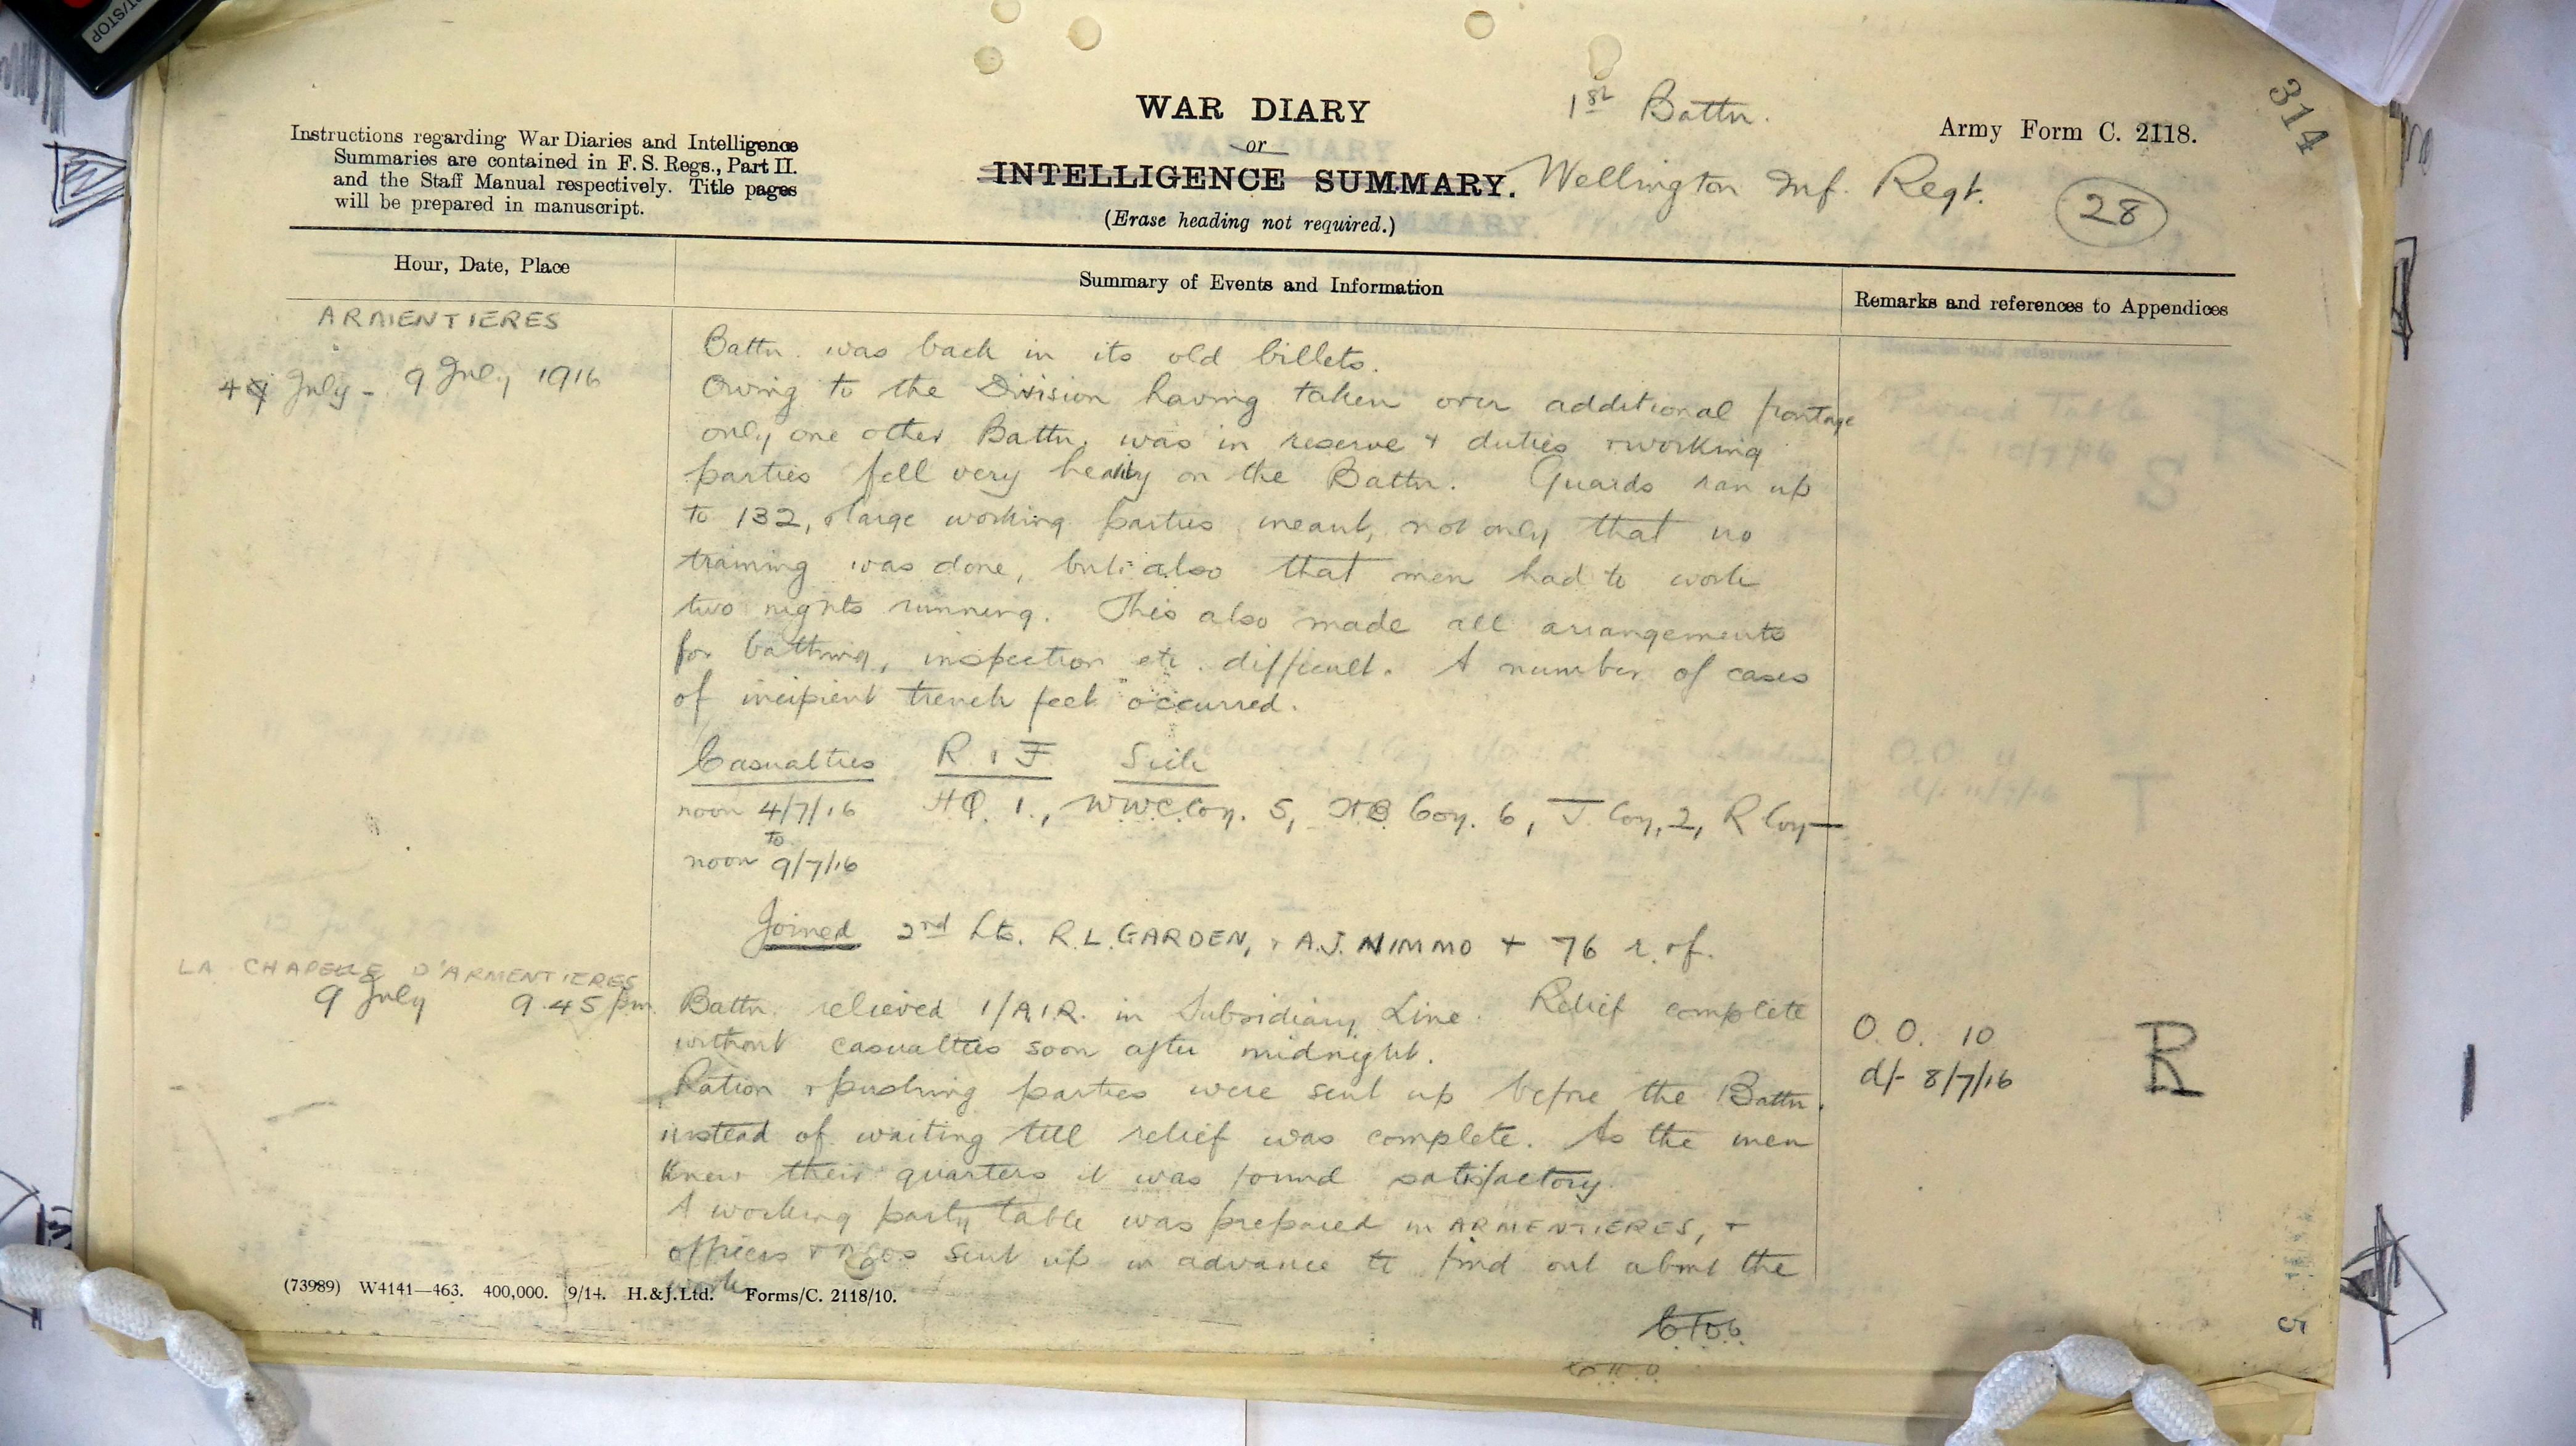 RT/STOP
314
WAR DIARY
or
INTELLIGENCE SUMMARY.
(Erase heading not required.)
1st Battn.
Wellington Inf. Regt.
Army Form C. 2118.
28
Instructions regarding War Diaries and Intelligence
Summaries are contained in F. S. Regs., Part II.
and the Staff Manual respectively. Title pages
will be prepared in manuscript.
Hour, Date, Place
Summary of Events and Information
Remarks and references to Appendices
ARMENTIERES
4 July - 9 July 1916
Battn. was back in its old billets.
Owing to the Division having taken over additional frontage
only one other Battn. was in reserve + duties + working
parties fell very heavily on the Battn. Guards ran up
to 132, + large working parties meant, not only that no
training was done, but also that men had to work
two nights running. This also made all arrangements
for bathing, inspection etc. difficult. A number of cases
of incipient "trench feet" occurred.
Casualties R. & F. Sick
noon 4/7/16 HQ. 1., WWC Coy. 5, HB Coy. 6, T. Coy, 2, R Coy —
to
noon 9/7/16
Joined 2nd Lts. R.L. GARDEN, + A.J. NIMMO + 76 r. + f.
LA CHAPELLE D'ARMENTIERES
9 July 9.45 pm.
Battn. relieved 1/A.I.R. in Subsidiary Line. Relief complete
without casualties soon after midnight.
Ration + pushing parties were sent up before the Battn.
instead of waiting till relief was complete. As the men
knew their quarters it was found satisfactory.
A working party table was prepared in ARMENTIERES, +
officers + NCOs sent up in advance to find out about the
work
O.O. 10
d/- 8/7/16
R
(73989) W4141—463. 400,000. 9/14. H.&J.Ltd. Forms/C. 2118/10.